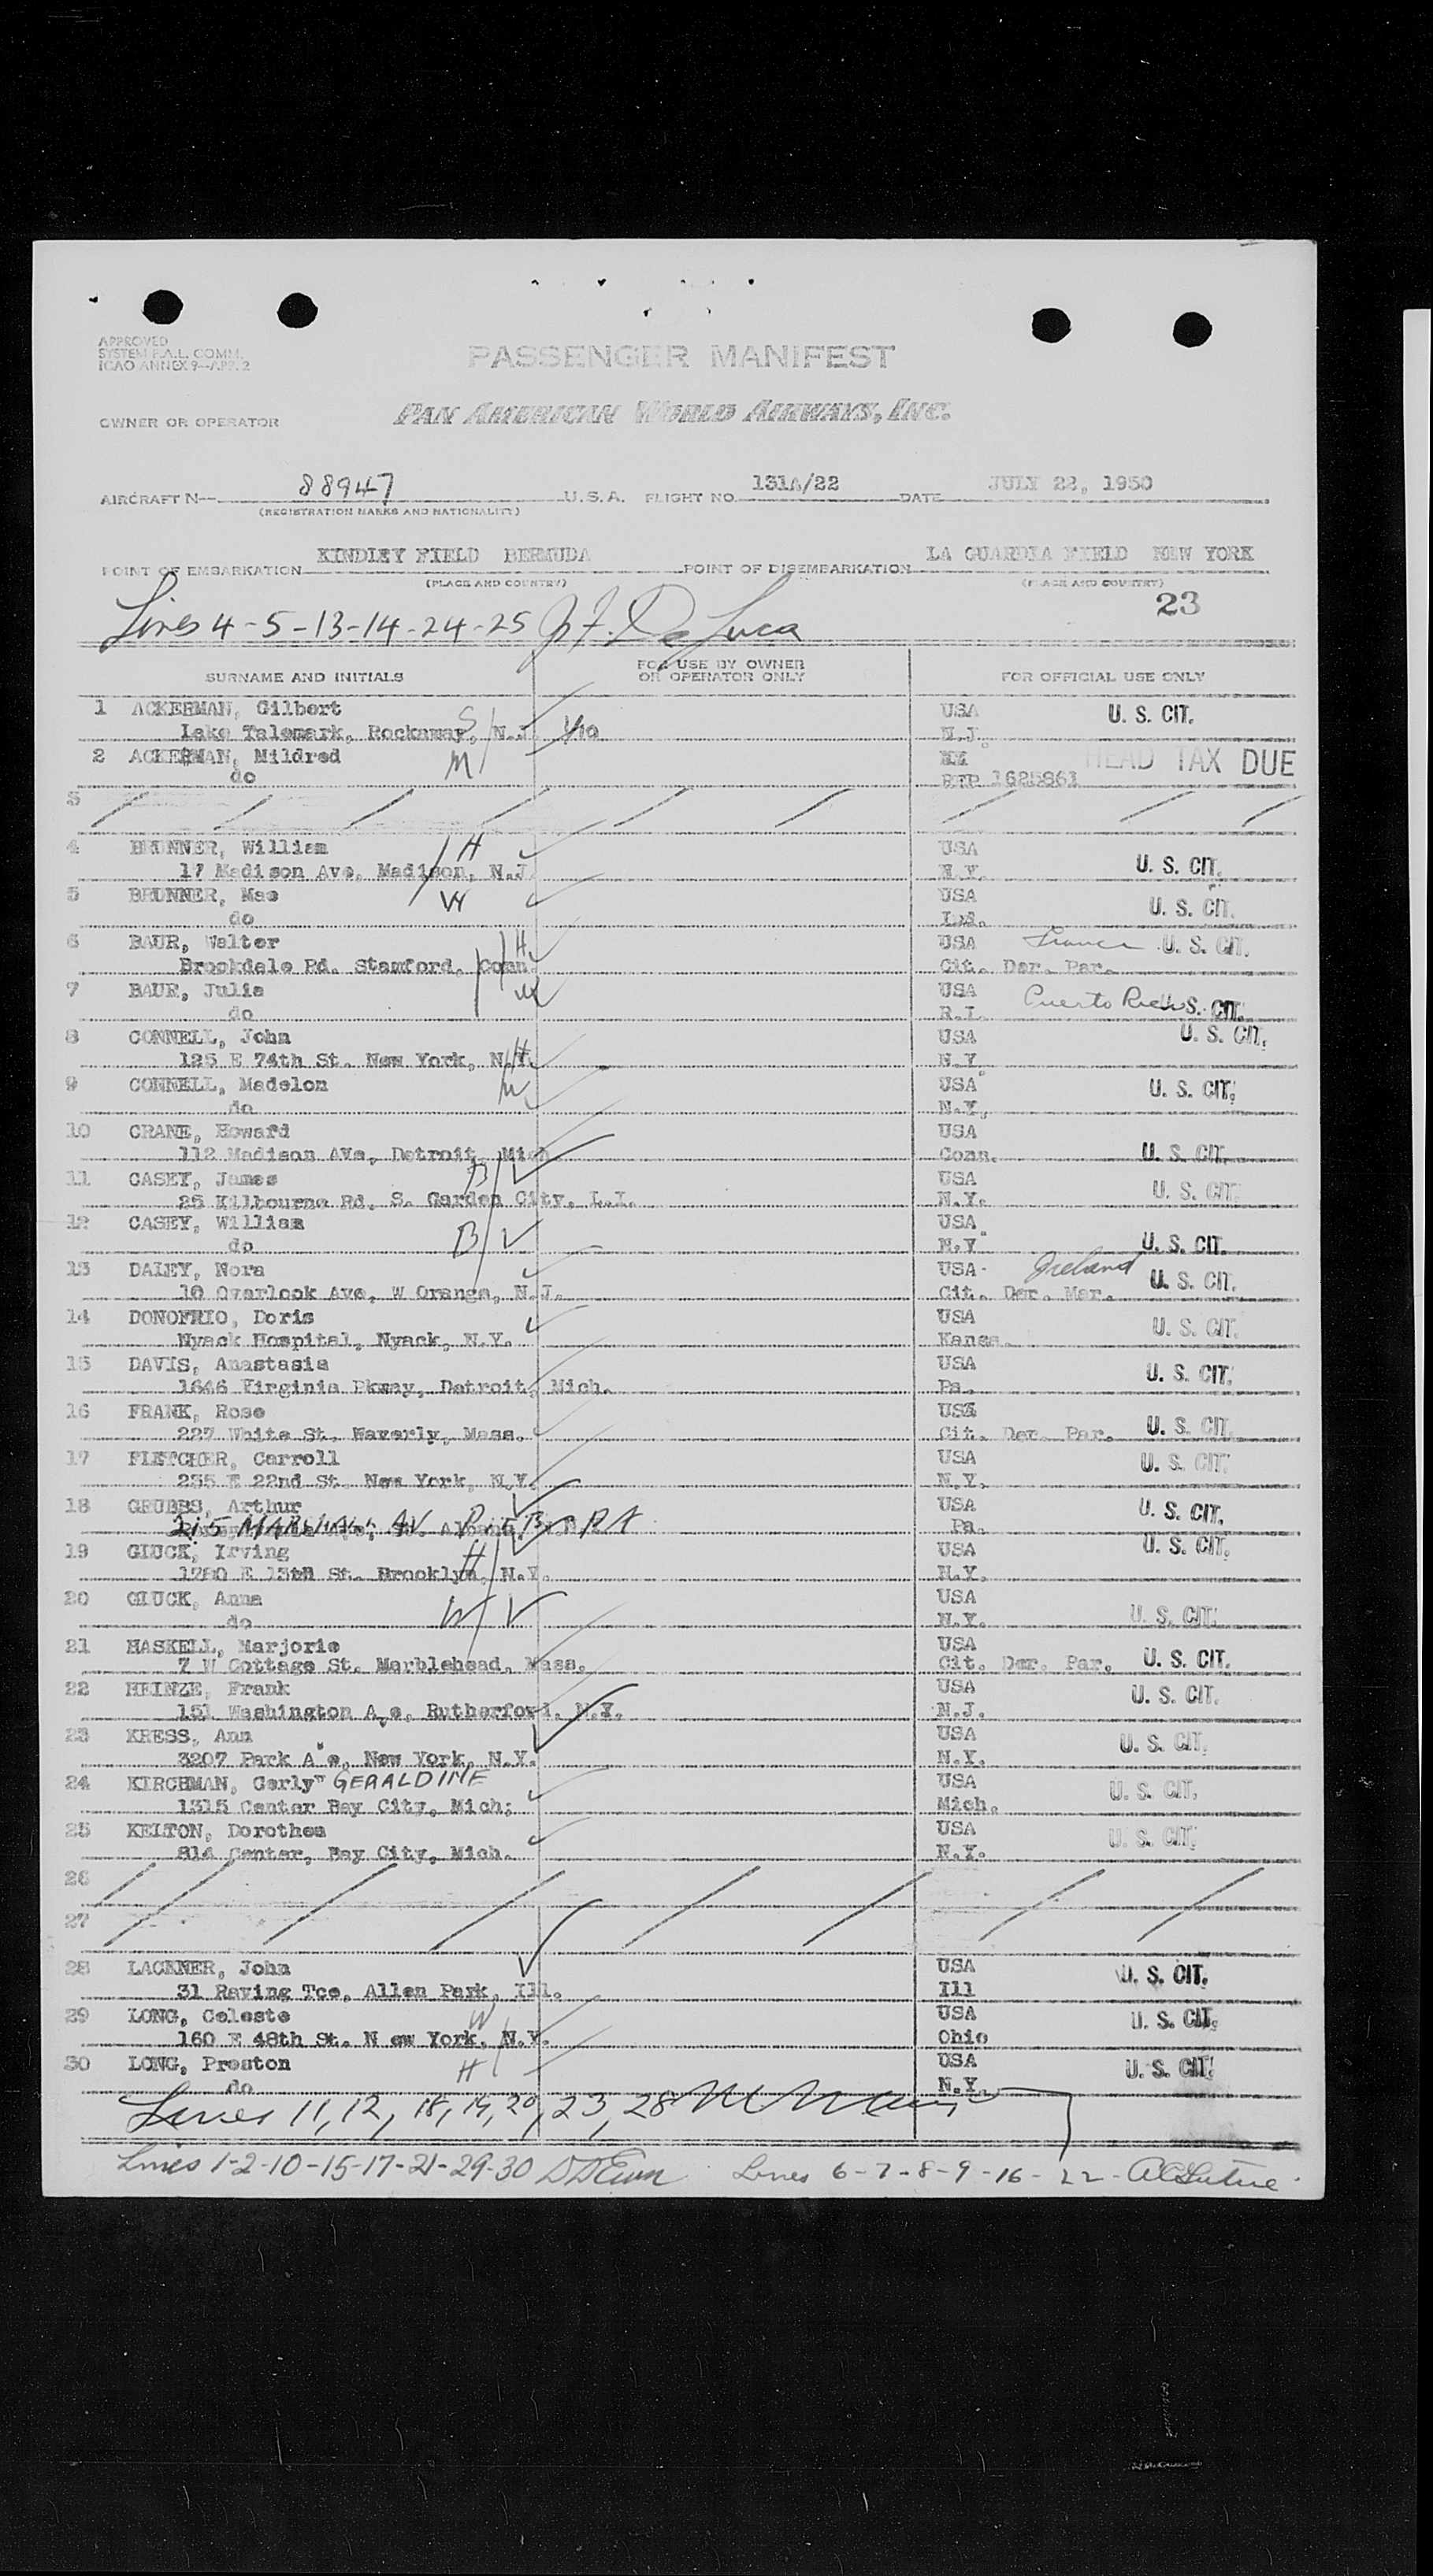 APPROVED
SYSTEM F.A.L. COMM.
ICAO ANNEX 9—APP. 2
PASSENGER MANIFEST
OWNER OR OPERATOR PAN AMERICAN WORLD AIRWAYS, INC.
AIRCRAFT N— 88947 U.S.A. FLIGHT NO. 131A/22 DATE JULY 22, 1950
(REGISTRATION MARKS AND NATIONALITY)
POINT OF EMBARKATION KINDLEY FIELD BERMUDA POINT OF DISEMBARKATION LA GUARDIA FIELD NEW YORK
(PLACE AND COUNTRY) (PLACE AND COUNTRY)
23
Lines 4-5-13-14-24-25 De Luca
SURNAME AND INITIALS FOR USE BY OWNER OR OPERATOR ONLY FOR OFFICIAL USE ONLY
1 ACKERMAN, Gilbert USA U. S. CIT.
Lake Telemark, Rockaway, N.J. N.J.
2 ACKERMAN, Mildred M HEAD TAX DUE
do REP 1625861
3
4 BRUNNER, William H USA
17 Madison Ave, Madison, N.J. N.Y. U. S. CIT.
5 BRUNNER, Mae W USA
do U. S. CIT.
6 BAUR, Walter H USA France U. S. CIT.
Brookdale Rd. Stamford, Conn. Cit. Der. Par.
7 BAUR, Julia W USA Puerto Rico
do R.I. U. S. CIT.
8 CONNELL, John USA U. S. CIT.
125 E 74th St. New York, N.Y. H N.Y.
9 CONNELL, Madelon W USA U. S. CIT.
do N.Y.
10 CRANE, Howard USA
112 Madison AVe, Detroit, Mich Conn. U. S. CIT.
11 CASEY, James B USA
25 Kilbourne Rd, S. Garden City, L.I. N.Y. U. S. CIT.
12 CASEY, William USA
do B N.Y. U. S. CIT.
13 DALEY, Nora USA Ireland U. S. CIT.
10 Overlook Ave, W Orange, N.J. Cit. Der. Mar.
14 DONOFRIO, Doris USA
Nyack Hospital, Nyack, N.Y. Kansa. U. S. CIT.
15 DAVIS, Anastasia USA
1646 Virginia Pkway, Detroit, Mich. Pa. U. S. CIT.
16 FRANK, Rose USA
227 White St. Waverly, Mass. Cit. Der. Par. U. S. CIT.
17 FLETCHER, Carroll USA
235 E 22nd St. New York, N.Y. N.Y. U. S. CIT.
18 GRUBBS, Arthur USA U. S. CIT.
215 MARSHALL AV PA Pa.
19 GLUCK, Irving H USA U. S. CIT.
1780 E 13th St. Brooklyn, N.Y. N.Y.
20 GLUCK, Anna USA
do W N.Y. U. S. CIT.
21 HASKELL, Marjorie USA
7 W Cottage St. Marblehead, Mass. Cit. Der. Par. U. S. CIT.
22 HEINZE, Frank USA
151 Washington Ave, Rutherford, N.Y. N.J. U. S. CIT.
23 KRESS, Ann USA
3207 Park Ave, New York, N.Y. N.Y. U. S. CIT.
24 KIRCHMAN, Gerly GERALDINE USA
1315 Center Bay City, Mich; Mich. U. S. CIT.
25 KELTON, Dorothea USA
814 Center, Bay City, Mich. N.Y. U. S. CIT.
26
27
28 LACKNER, John USA U. S. CIT.
31 Raving Tce, Allen Park, Ill. Ill
29 LONG, Celeste W USA
160 E 48th St. N ew York, N.Y. Ohio U. S. CIT.
30 LONG, Preston H USA U. S. CIT.
do N.Y.
Lines 11, 12, 18, 19, 20, 23, 28
Lines 1-2-10-15-17-21-29-30 Lines 6-7-8-9-16-22-